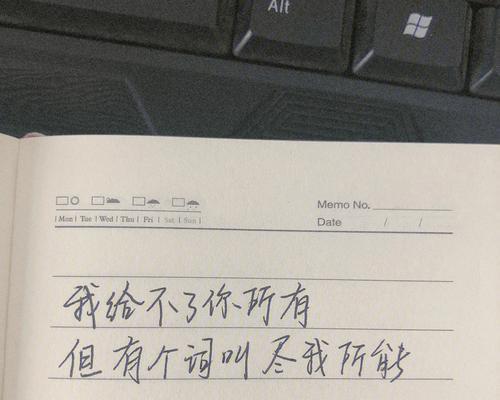 Alt
Memo No.
| Mon | Tue | Wed | Thu | Fri | Sat | Sun |
Date / /
我给不了你所有
但有个词叫尽我所能